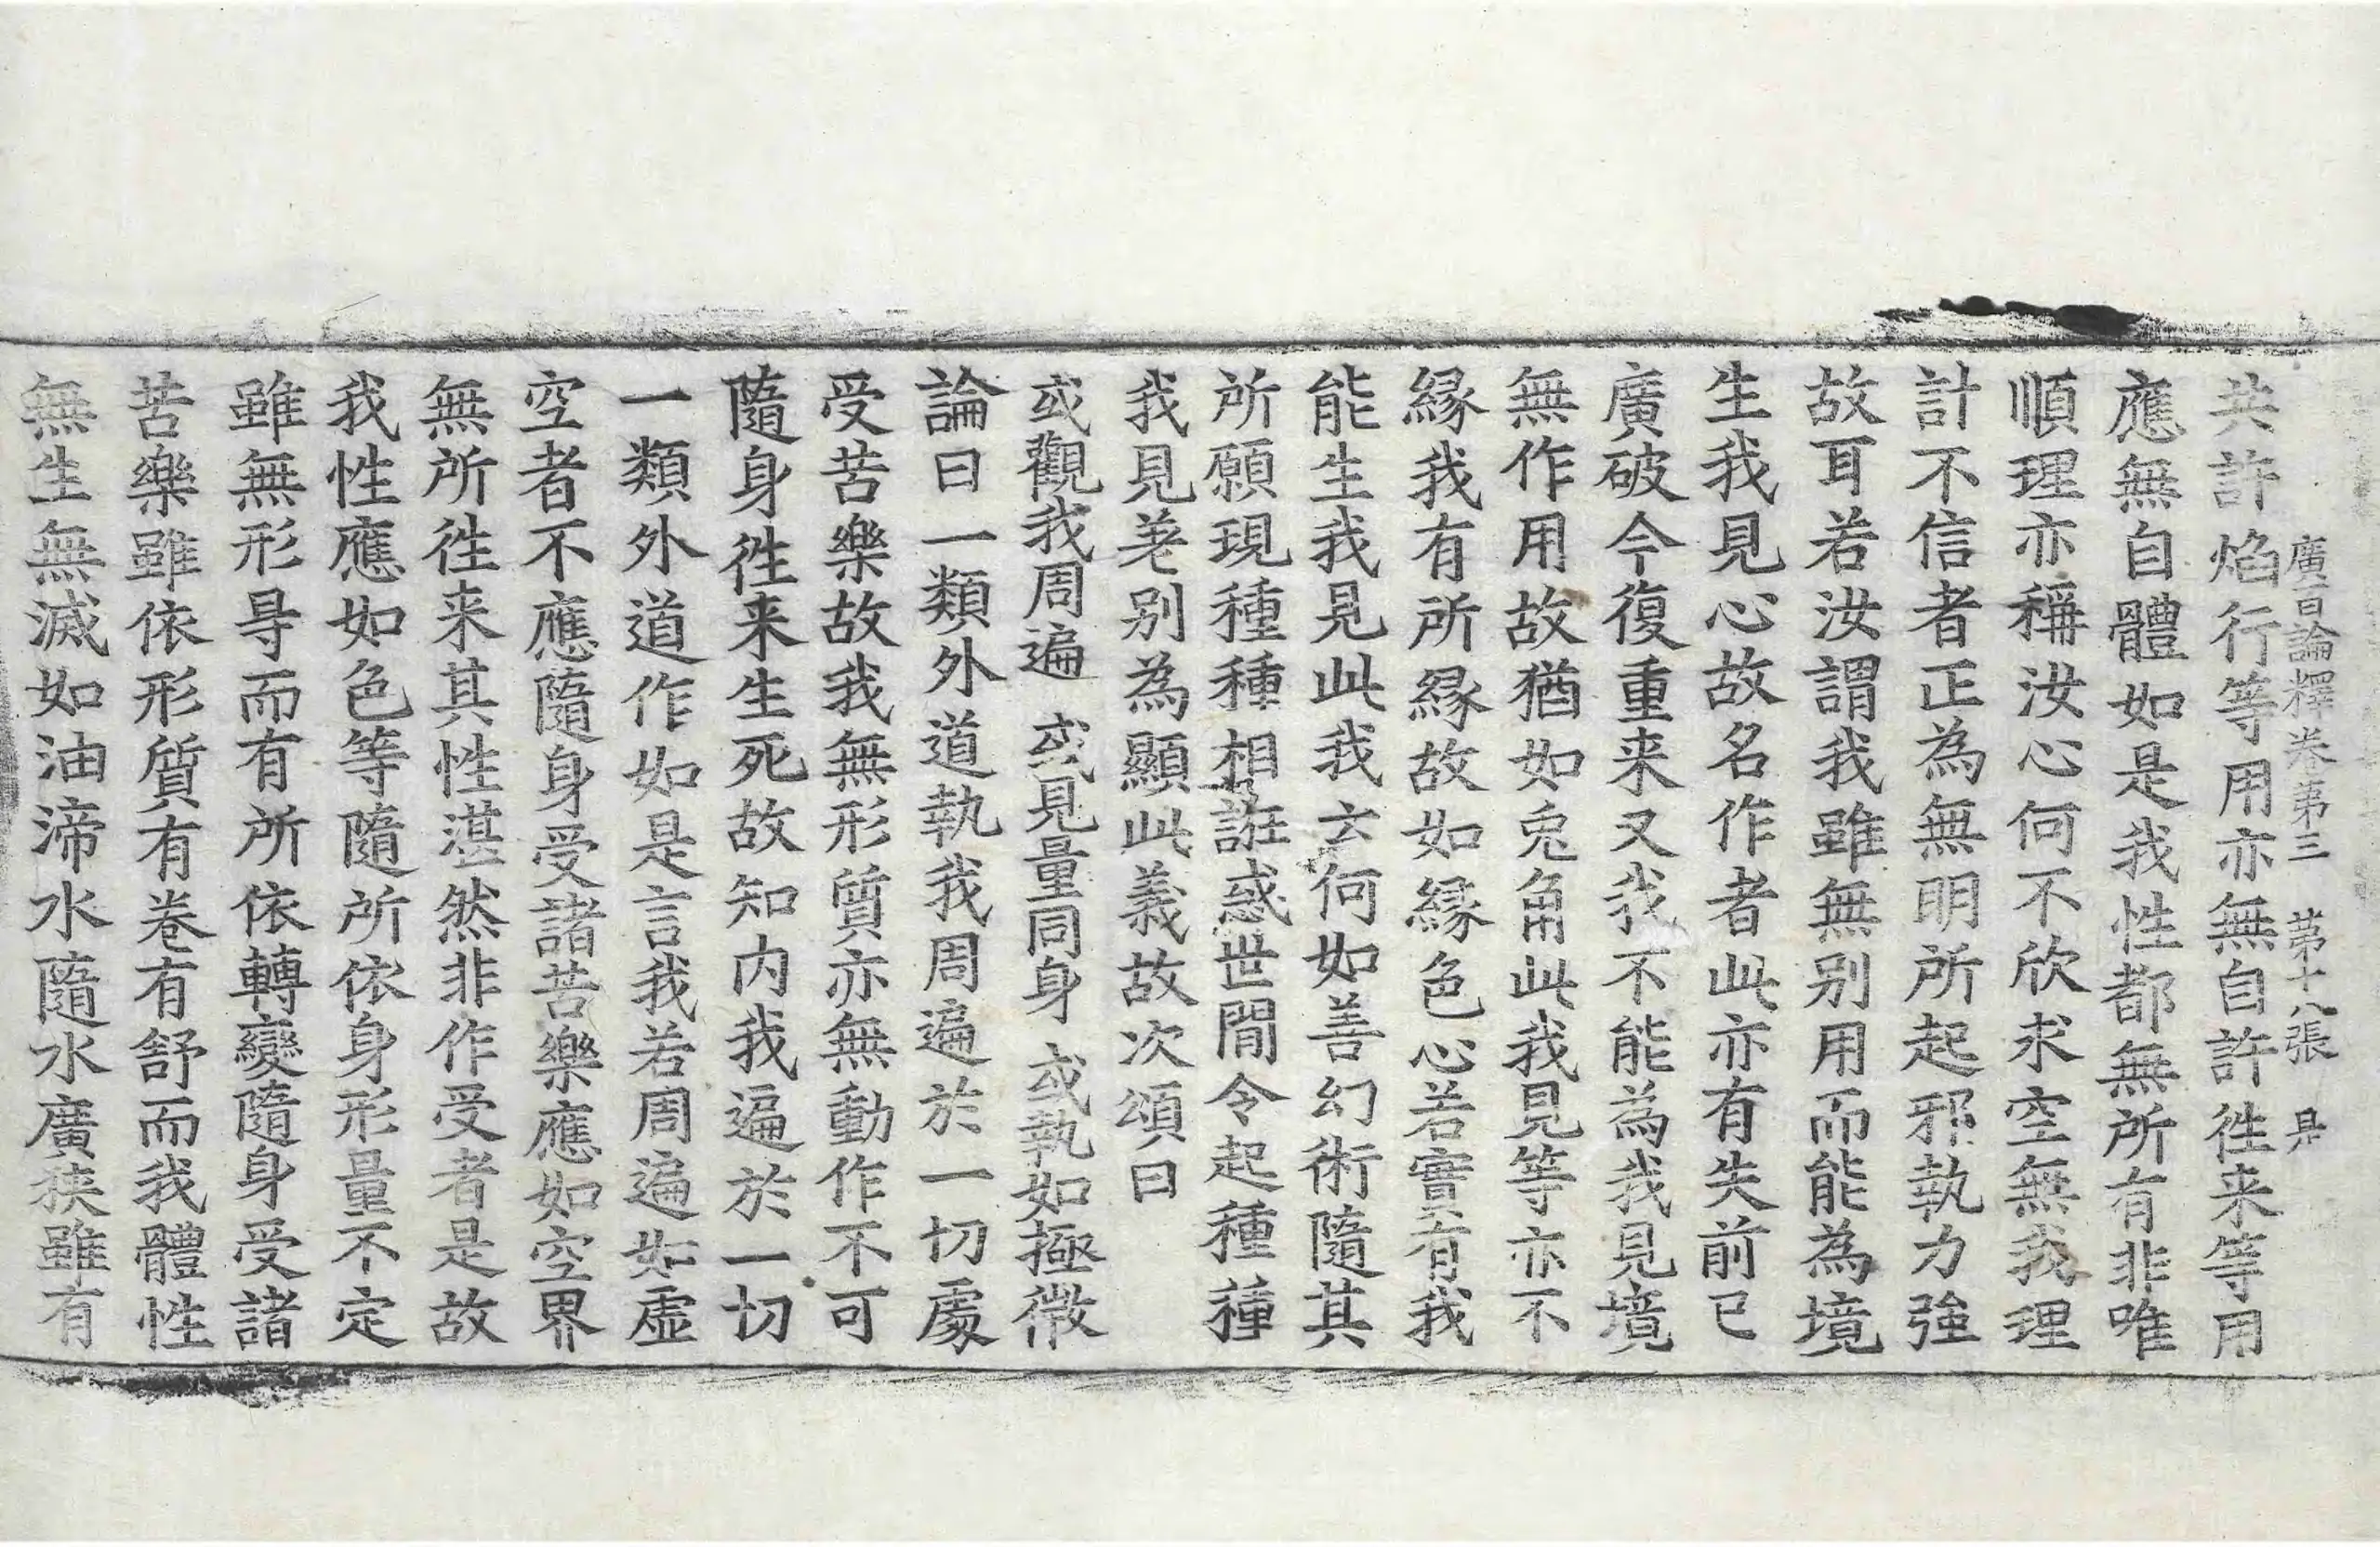 廣百論釋卷第三　第十八張　是
共許焰行等用亦無自許徃来等用
應無自體如是我性都無所有非唯
順理亦稱汝心何不欣求空無我理
計不信者正為無明所起邪執力強
故耳若汝謂我雖無别用而能為境
生我見心故名作者此亦有失前已
廣破今復重来又我不能為我見境
無作用故猶如兔角此我見等亦不
緣我有所緣故如緣色心若實有我
能生我見此我云何如善幻術隨其
所願現種種相誑惑世間令起種種
我見差别為顯此義故次頌曰
或觀我周遍　或見量同身　或執如極微
論曰一類外道執我周遍於一切處
受苦樂故我無形質亦無動作不可
隨身徃来生死故知内我遍於一切
一類外道作如是言我若周遍如虛
空者不應隨身受諸苦樂應如空界
無所徃来其性湛然非作受者是故
我性應如色等隨所依身形量不定
雖無形㝵而有所依轉變隨身受諸
苦樂雖依形質有卷有舒而我體性
無生無滅如油渧水隨水廣狹雖有